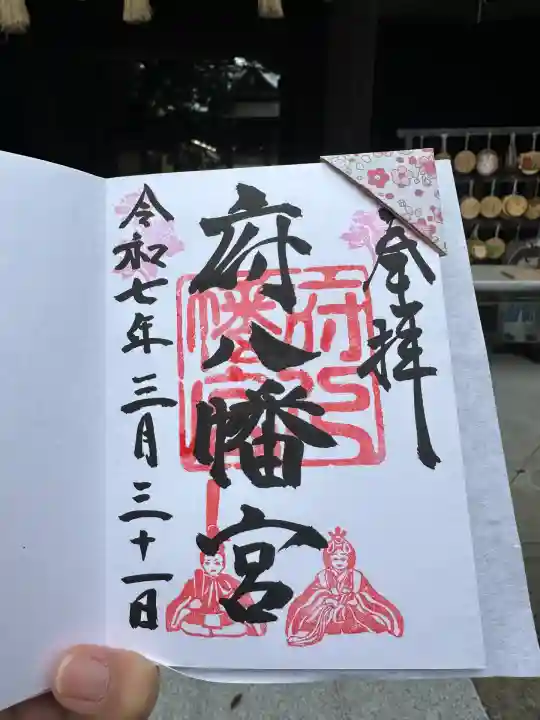 奉拝
府八幡宮
令和七年三月三十一日
府八
幡宮